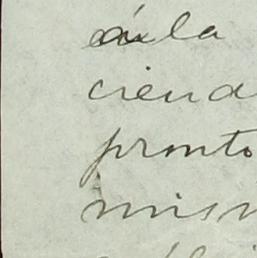 á la
cienda
pronto
mism